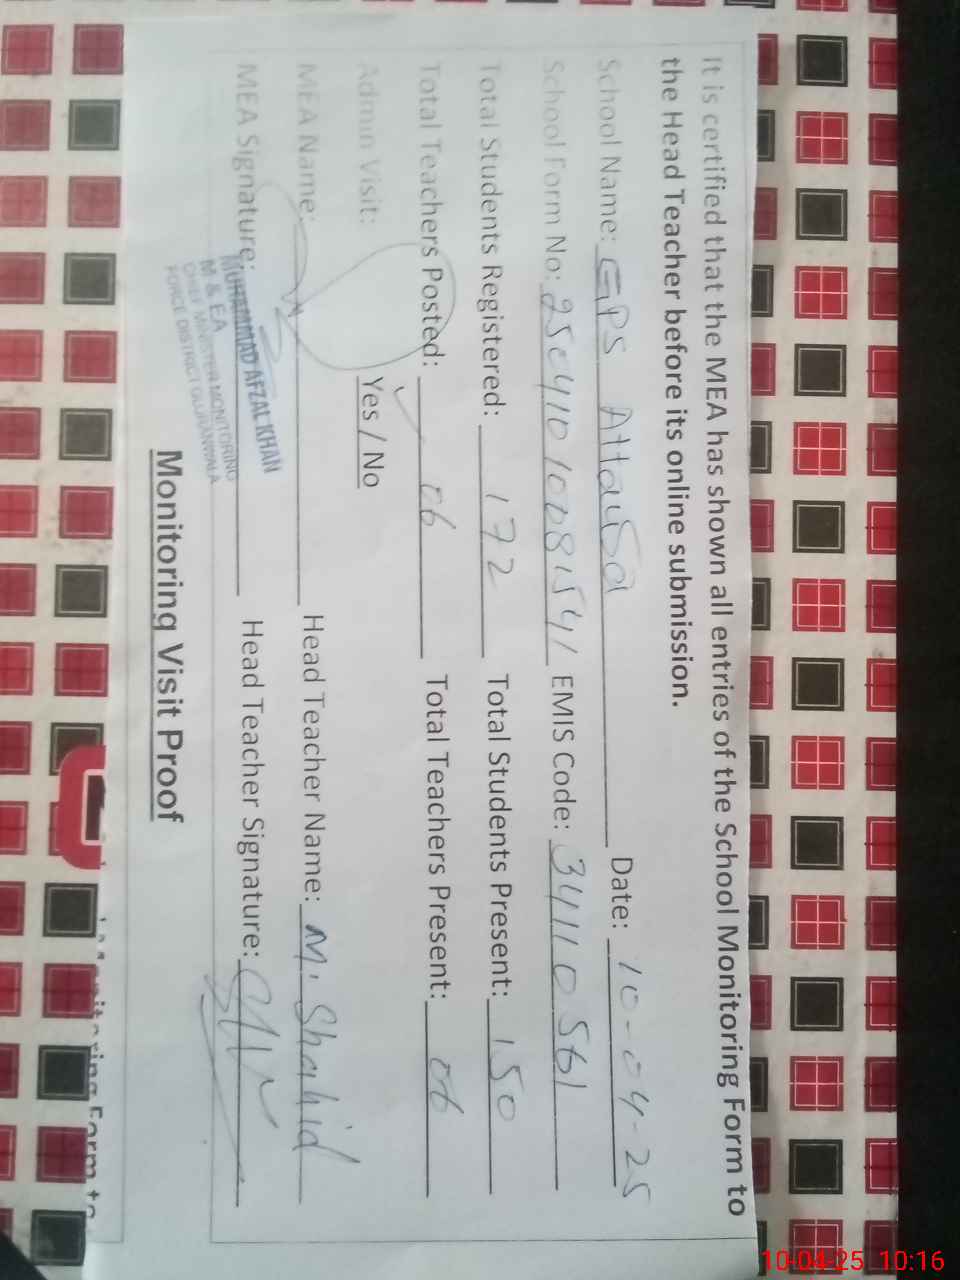 It is certified that the MEA has shown all entries of the School Monitoring Form to
the Head Teacher before its online submission.
School Name: GPS Attawa Date: 10-04-25
School Form No: EMIS Code: 34110561
Total Students Registered: 172 Total Students Present: 150
Total Teachers Posted: 06 Total Teachers Present: 06
Admin Visit: Yes / No
MEA Name: Head Teacher Name: M. Shahid
MEA Signature: Head Teacher Signature:
MUHAMMAD AFZAL KHAN
M & EA
CHIEF MINISTER MONITORING
FORCE DISTRICT GUJRANWALA
Monitoring Visit Proof
Monitoring Form to
10-04-25 10:16